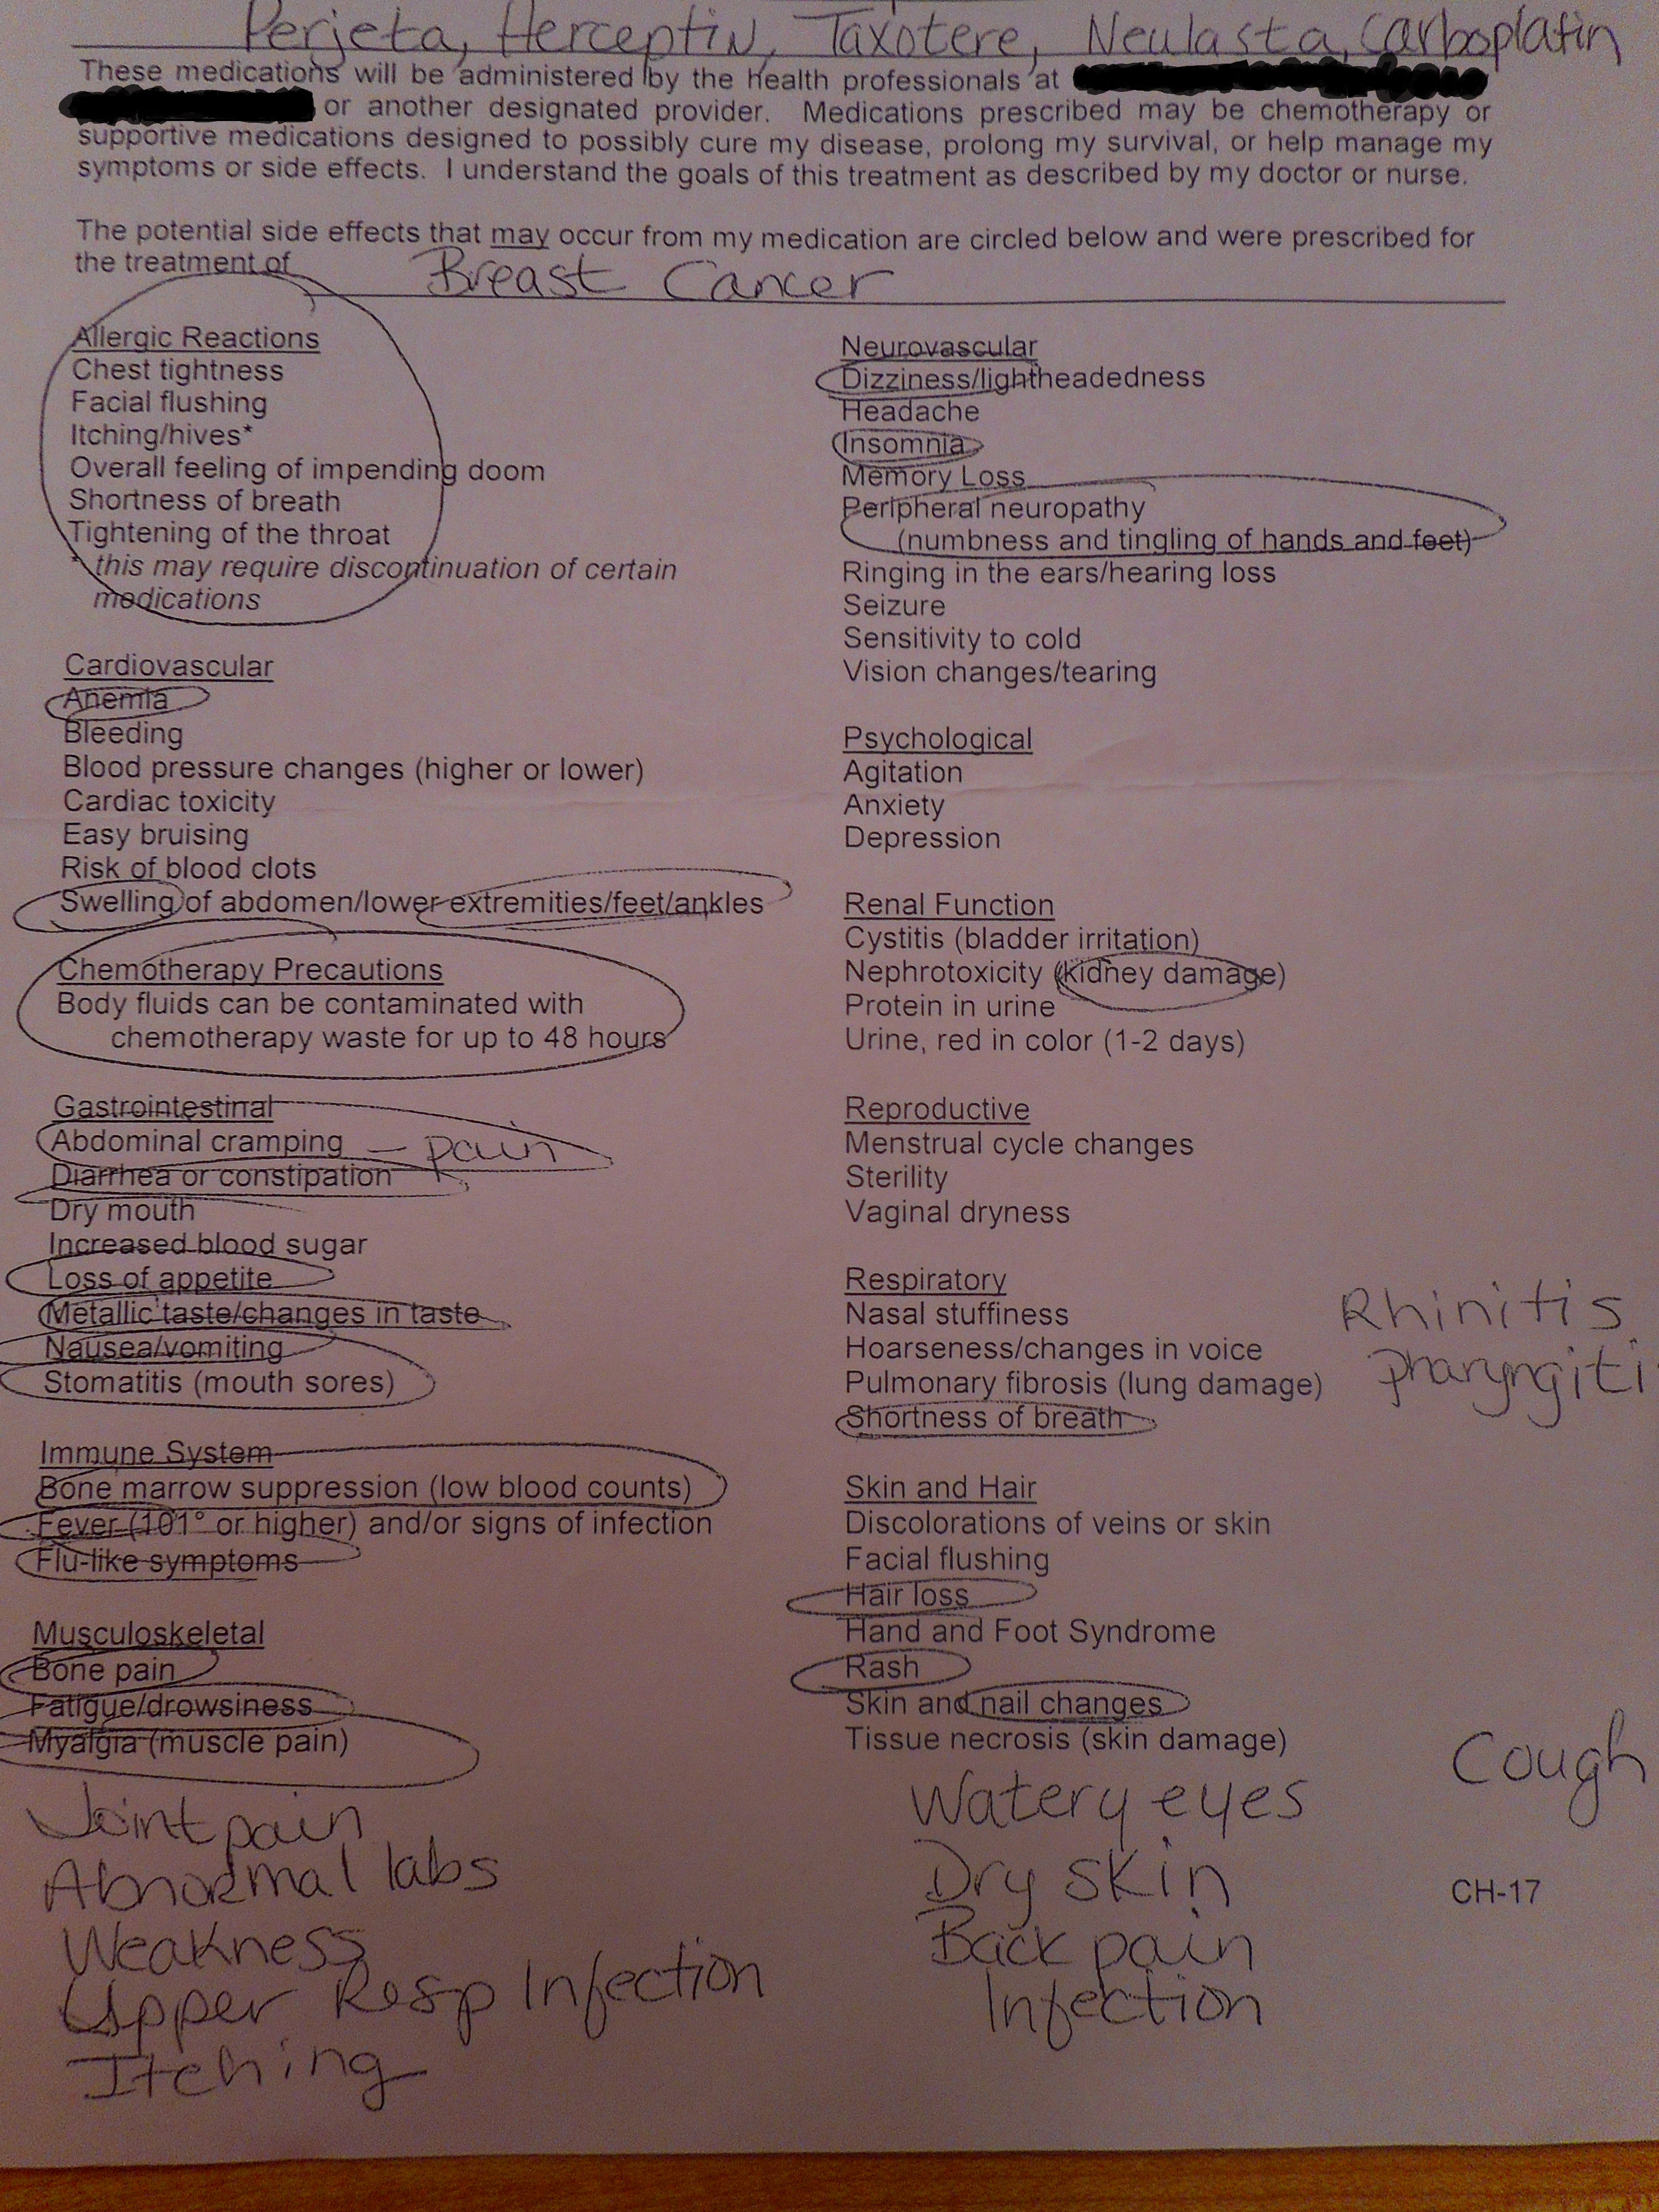 Perjeta, Herceptin, Taxotere, Neulasta, Carboplatin
These medications will be administered by the health professionals at
or another designated provider. Medications prescribed may be chemotherapy or
supportive medications designed to possibly cure my disease, prolong my survival, or help manage my
symptoms or side effects. I understand the goals of this treatment as described by my doctor or nurse.
The potential side effects that may occur from my medication are circled below and were prescribed for
the treatment of Breast Cancer
Allergic Reactions
Chest tightness
Facial flushing
Itching/hives*
Overall feeling of impending doom
Shortness of breath
Tightening of the throat
* this may require discontinuation of certain
medications
Cardiovascular
Anemia
Bleeding
Blood pressure changes (higher or lower)
Cardiac toxicity
Easy bruising
Risk of blood clots
Swelling of abdomen/lower extremities/feet/ankles
Chemotherapy Precautions
Body fluids can be contaminated with
chemotherapy waste for up to 48 hours
Gastrointestinal
Abdominal cramping - pain
Diarrhea or constipation
Dry mouth
Increased blood sugar
Loss of appetite
Metallic taste/changes in taste
Nausea/vomiting
Stomatitis (mouth sores)
Immune System
Bone marrow suppression (low blood counts)
Fever (101° or higher) and/or signs of infection
Flu-like symptoms
Musculoskeletal
Bone pain
Fatigue/drowsiness
Myalgia (muscle pain)
Joint pain
Abnormal labs
Weakness
Upper Resp Infection
Itching
Neurovascular
Dizziness/lightheadedness
Headache
Insomnia
Memory Loss
Peripheral neuropathy
(numbness and tingling of hands and feet)
Ringing in the ears/hearing loss
Seizure
Sensitivity to cold
Vision changes/tearing
Psychological
Agitation
Anxiety
Depression
Renal Function
Cystitis (bladder irritation)
Nephrotoxicity (kidney damage)
Protein in urine
Urine, red in color (1-2 days)
Reproductive
Menstrual cycle changes
Sterility
Vaginal dryness
Respiratory
Nasal stuffiness
Hoarseness/changes in voice
Pulmonary fibrosis (lung damage)
Shortness of breath
Rhinitis
Pharyngiti
Skin and Hair
Discolorations of veins or skin
Facial flushing
Hair loss
Hand and Foot Syndrome
Rash
Skin and nail changes
Tissue necrosis (skin damage)
Watery eyes
Dry skin
Back pain
Infection
Cough
CH-17